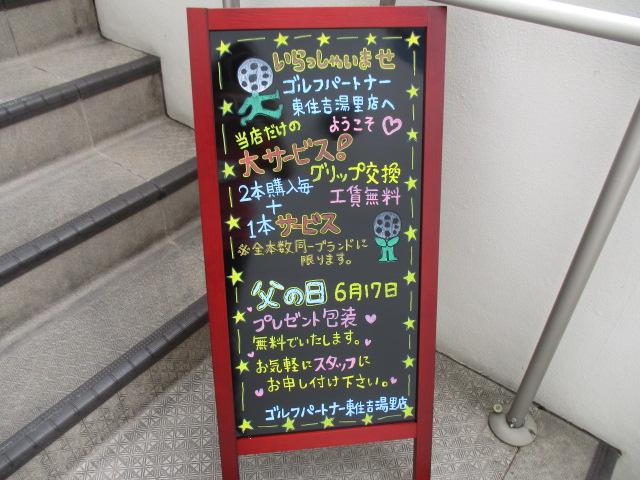 いらっしゃいませ
ゴルフパートナー
東住吉湯里店へ
ようこそ♡
当店だけの
大サービス!
グリップ交換
2本購入毎
工賃無料
+
1本サービス
※全本数同一ブランドに
限ります。
父の日 6月17日
プレゼント包装
無料でいたします。
お気軽にスタッフに
お申し付け下さい。
ゴルフパートナー東住吉湯里店